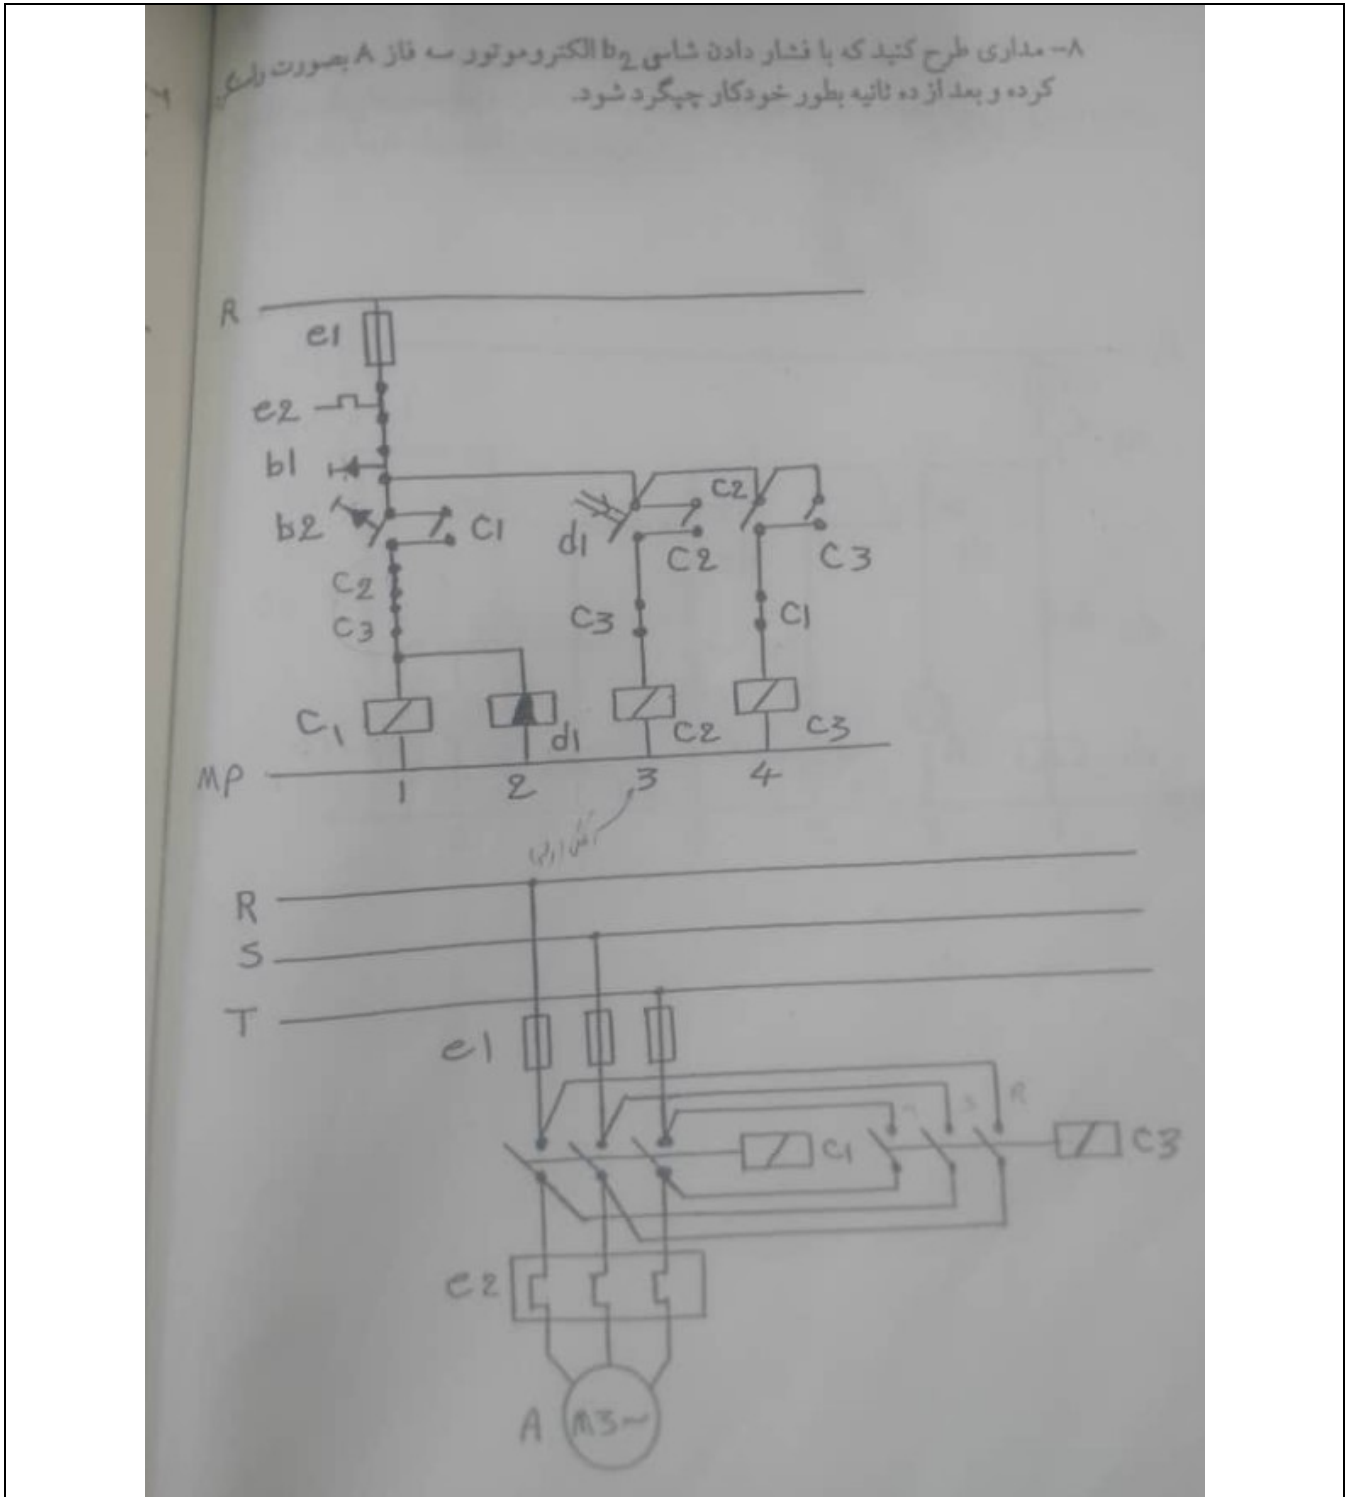 ۸- مداری طرح کنید که با فشار دادن شاسی b2 الکتروموتور سه فاز A بصورت
کرده و بعد از ده ثانیه بطور خودکار چپگرد شود.
R
e1
e2
b1
b2 C1 d1 C2 C2 C3
C2
C3 C3 C1
C1 d1 C2 C3
MP 1 2 3 4
R
S
T
e1
S R
C1 C3
e2
A M3~